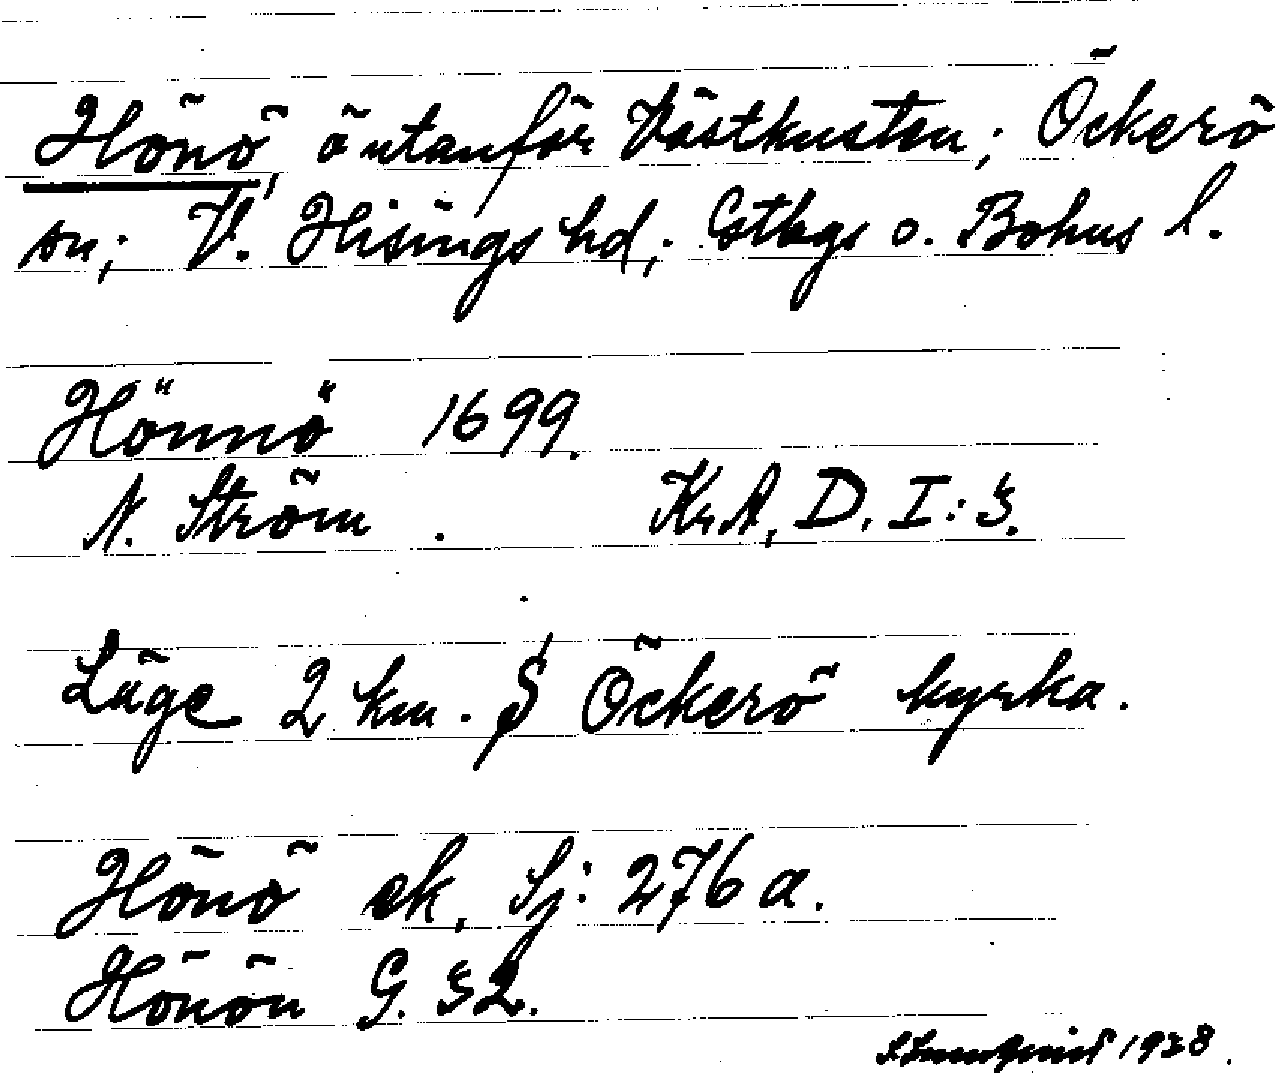 Hönö, ö utanför Västkusten; Öckerö
sn; V. Hisings hd; Gtbgs o. Bohus l.
Hönnö 1699.
N. Ström. KrA, D. I: 3.
Läge 2 km. S Öckerö kyrka.
Hönö ek, Sj: 276 a.
Hönön G. 32.
1928.